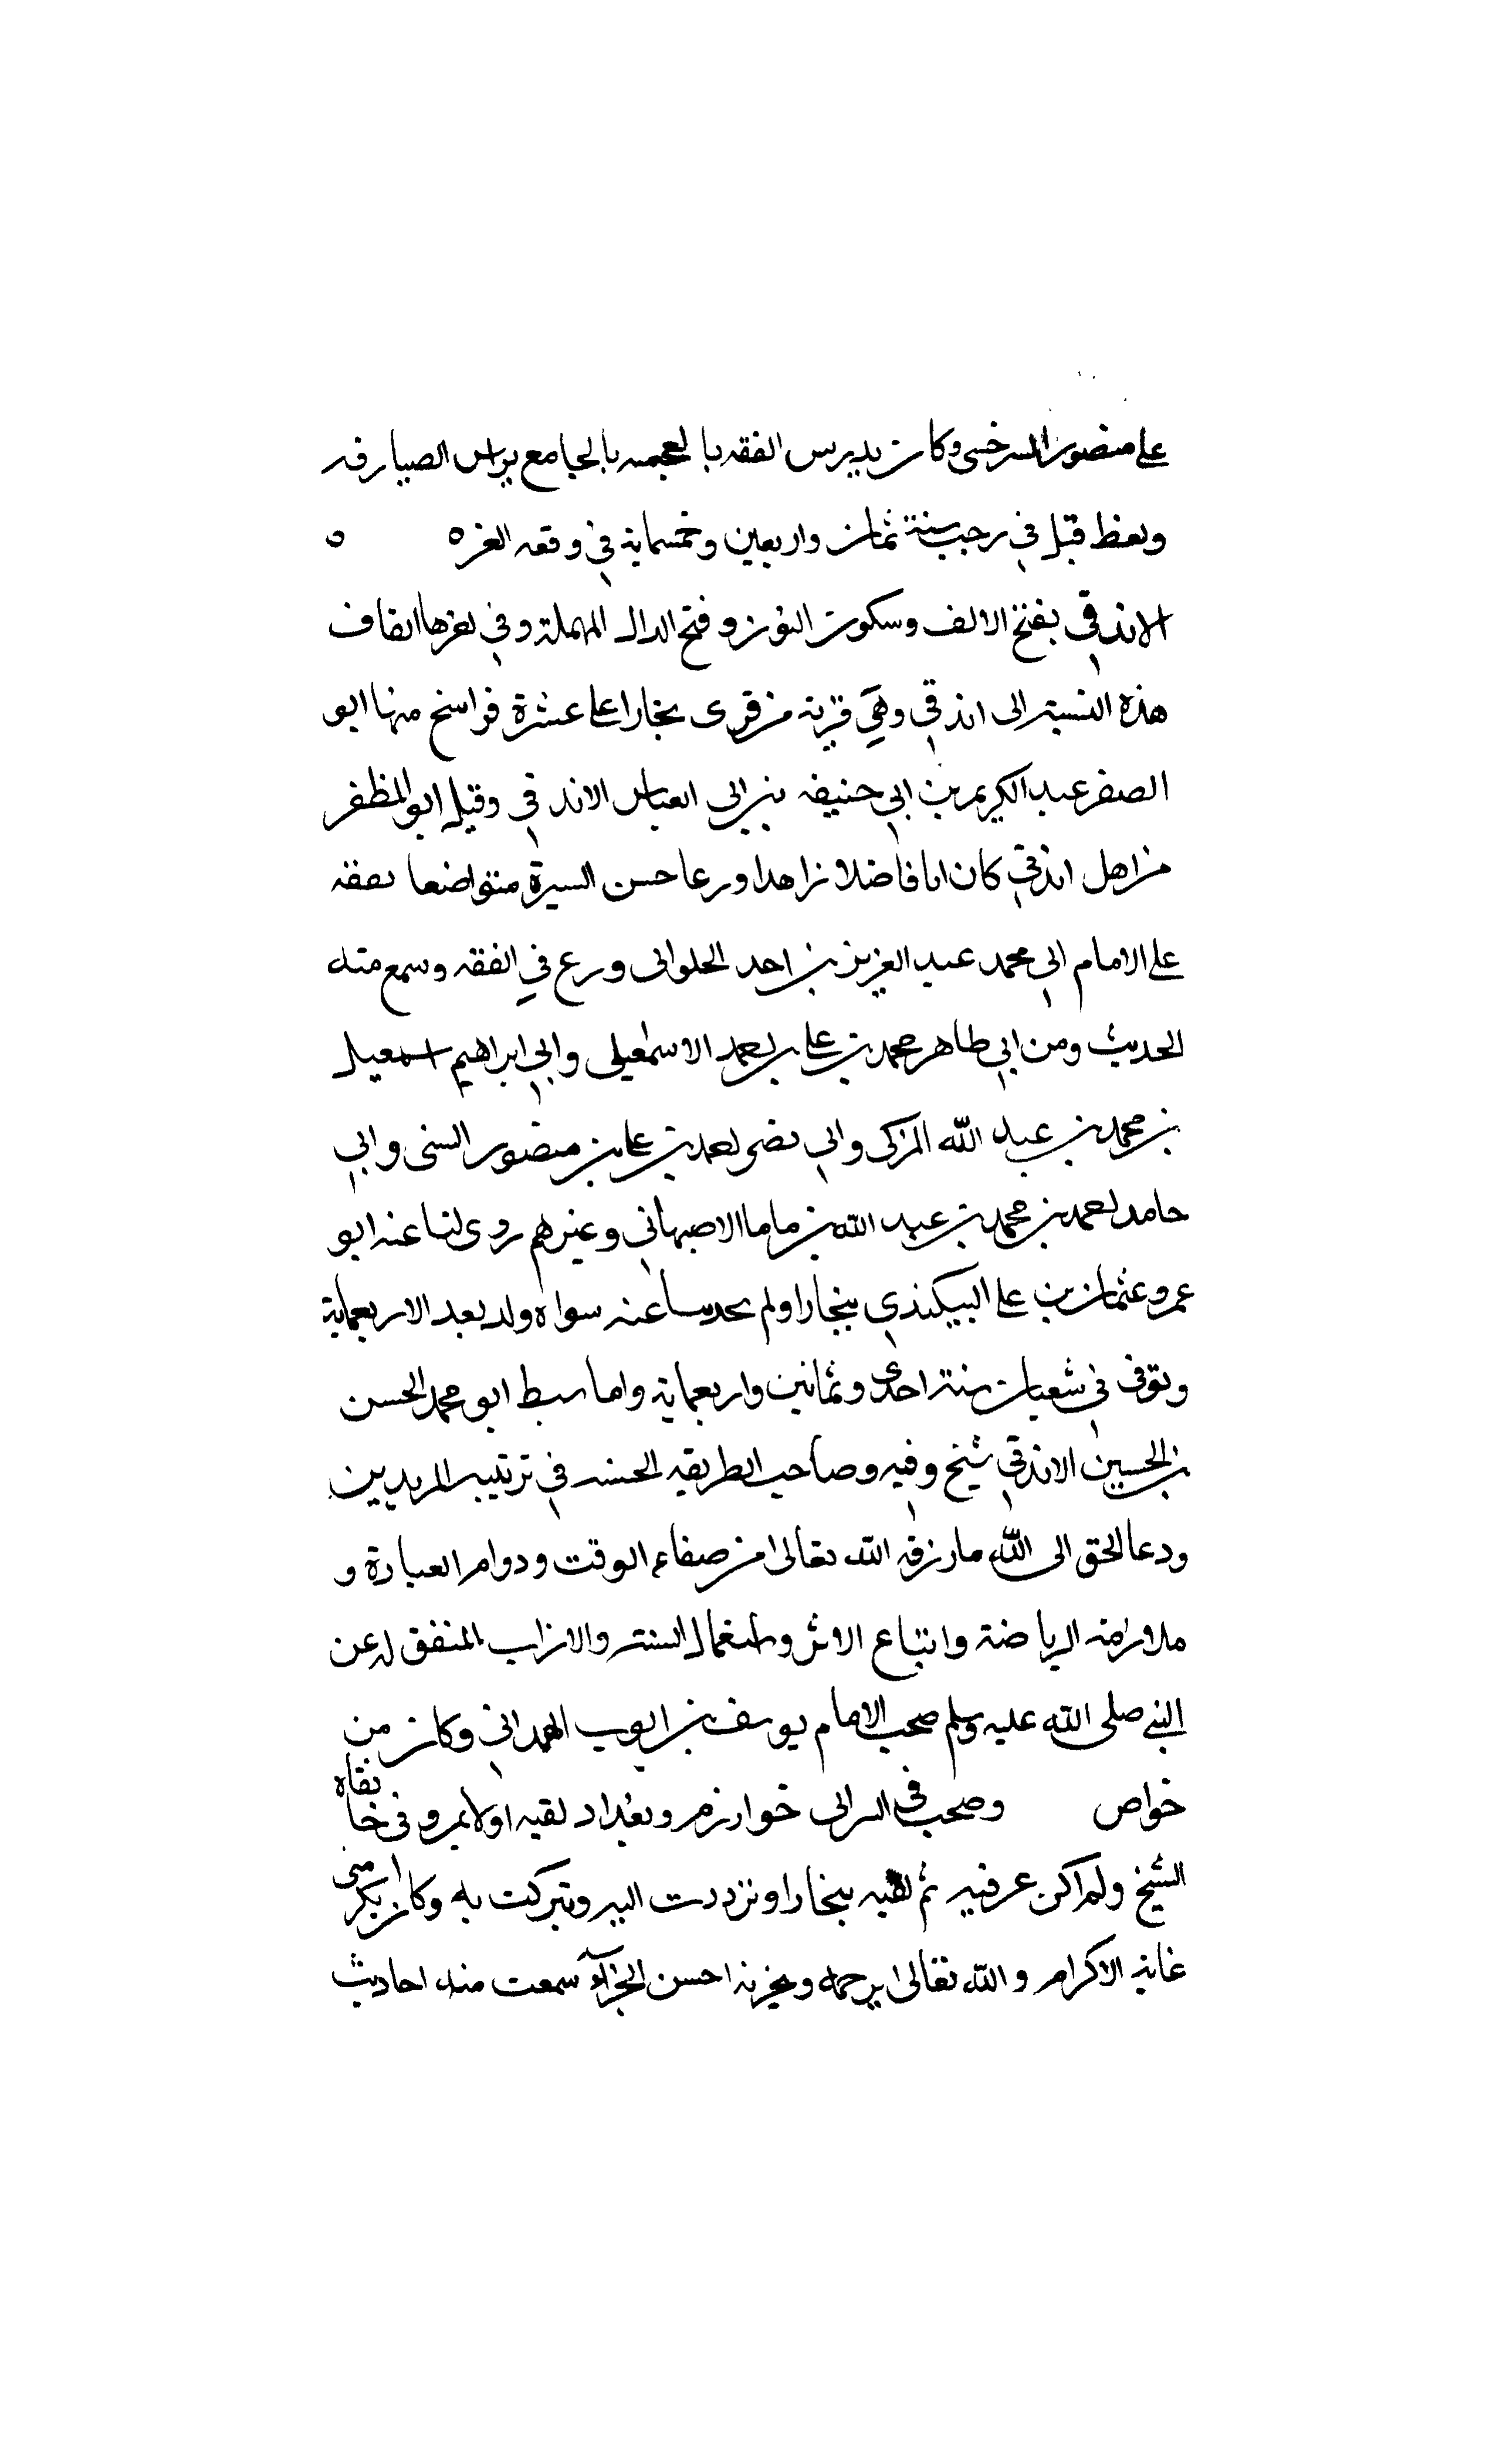 على منصور السرخسى وكان يدرس الفقه بالعجميه بالجامع براس الصيارفه
ويعظ قتل فى رجب سنة ثمان واربعين وخمسماية فى وقعه الغزه ه
الاندقى بفتح الالف وسكون النون وفتح الدال المهملة وفى اخرها القاف
هذه النسبة الى اندقى وهى قرية من قرى بخارا على عشرة فراسخ منها ابو
الصفر عبد الكريم بن ابى حنيفه بن ابى العباس الاندقى وقيل ابو المظفر
من اهل اندقى كان اماما فاضلا زاهدا ورعا حسن السيرة متواضعا تفقه
على الامام ابى محمد عبد العزيز بن احمد الحلوانى وبرع فى الفقه وسمع منه
الحديث ومن ابى طاهر محمد بن على بن احمد الاسمعيلى وابى ابراهيم اسمعيل
بن محمد بن عبد الله المزكى وابى نصر احمد بن على بن منصور السنى وابى
حامد احمد بن محمد بن عبد الله بن ماما الاصبهانى وغيرهم روى لنا عنه ابو
عمرو عثمان بن على البيكندى ببخارا ولم يحدثنا عنه سواه ولد بعد الاربعماية
وتوفى فى شعبان سنة احدى وثمانين واربعماية واما سبط ابو محمد الحسن
بن الحسين الاندقى شيخ وفيه وصاحب الطريقه الحسنه فى تربيتة المريدين
ودعا الخق الى الله ما رزقه الله تعالى من صفاء الوقت ودوام العبادة و
ملازمة الرياضة واتباع الاثر واستعمال السنة والاداب المتفق له عن
النبى صلى الله عليه وسلم صحب الامام يوسف بن ايوب الهمدانى وكان من
خواص وصحب فى السر الى خوارزم وبغداد لقيه اولا بمرو فى خانقاه
الشيخ ولم اكن عرفنيه ثم لقيه ببخارا وترددت اليه وتبركت به وكان يكرمنى
غاية الاكرام والله تعالى يرحمه ويجزيه احسن الجزاء سمعت منه احاديث